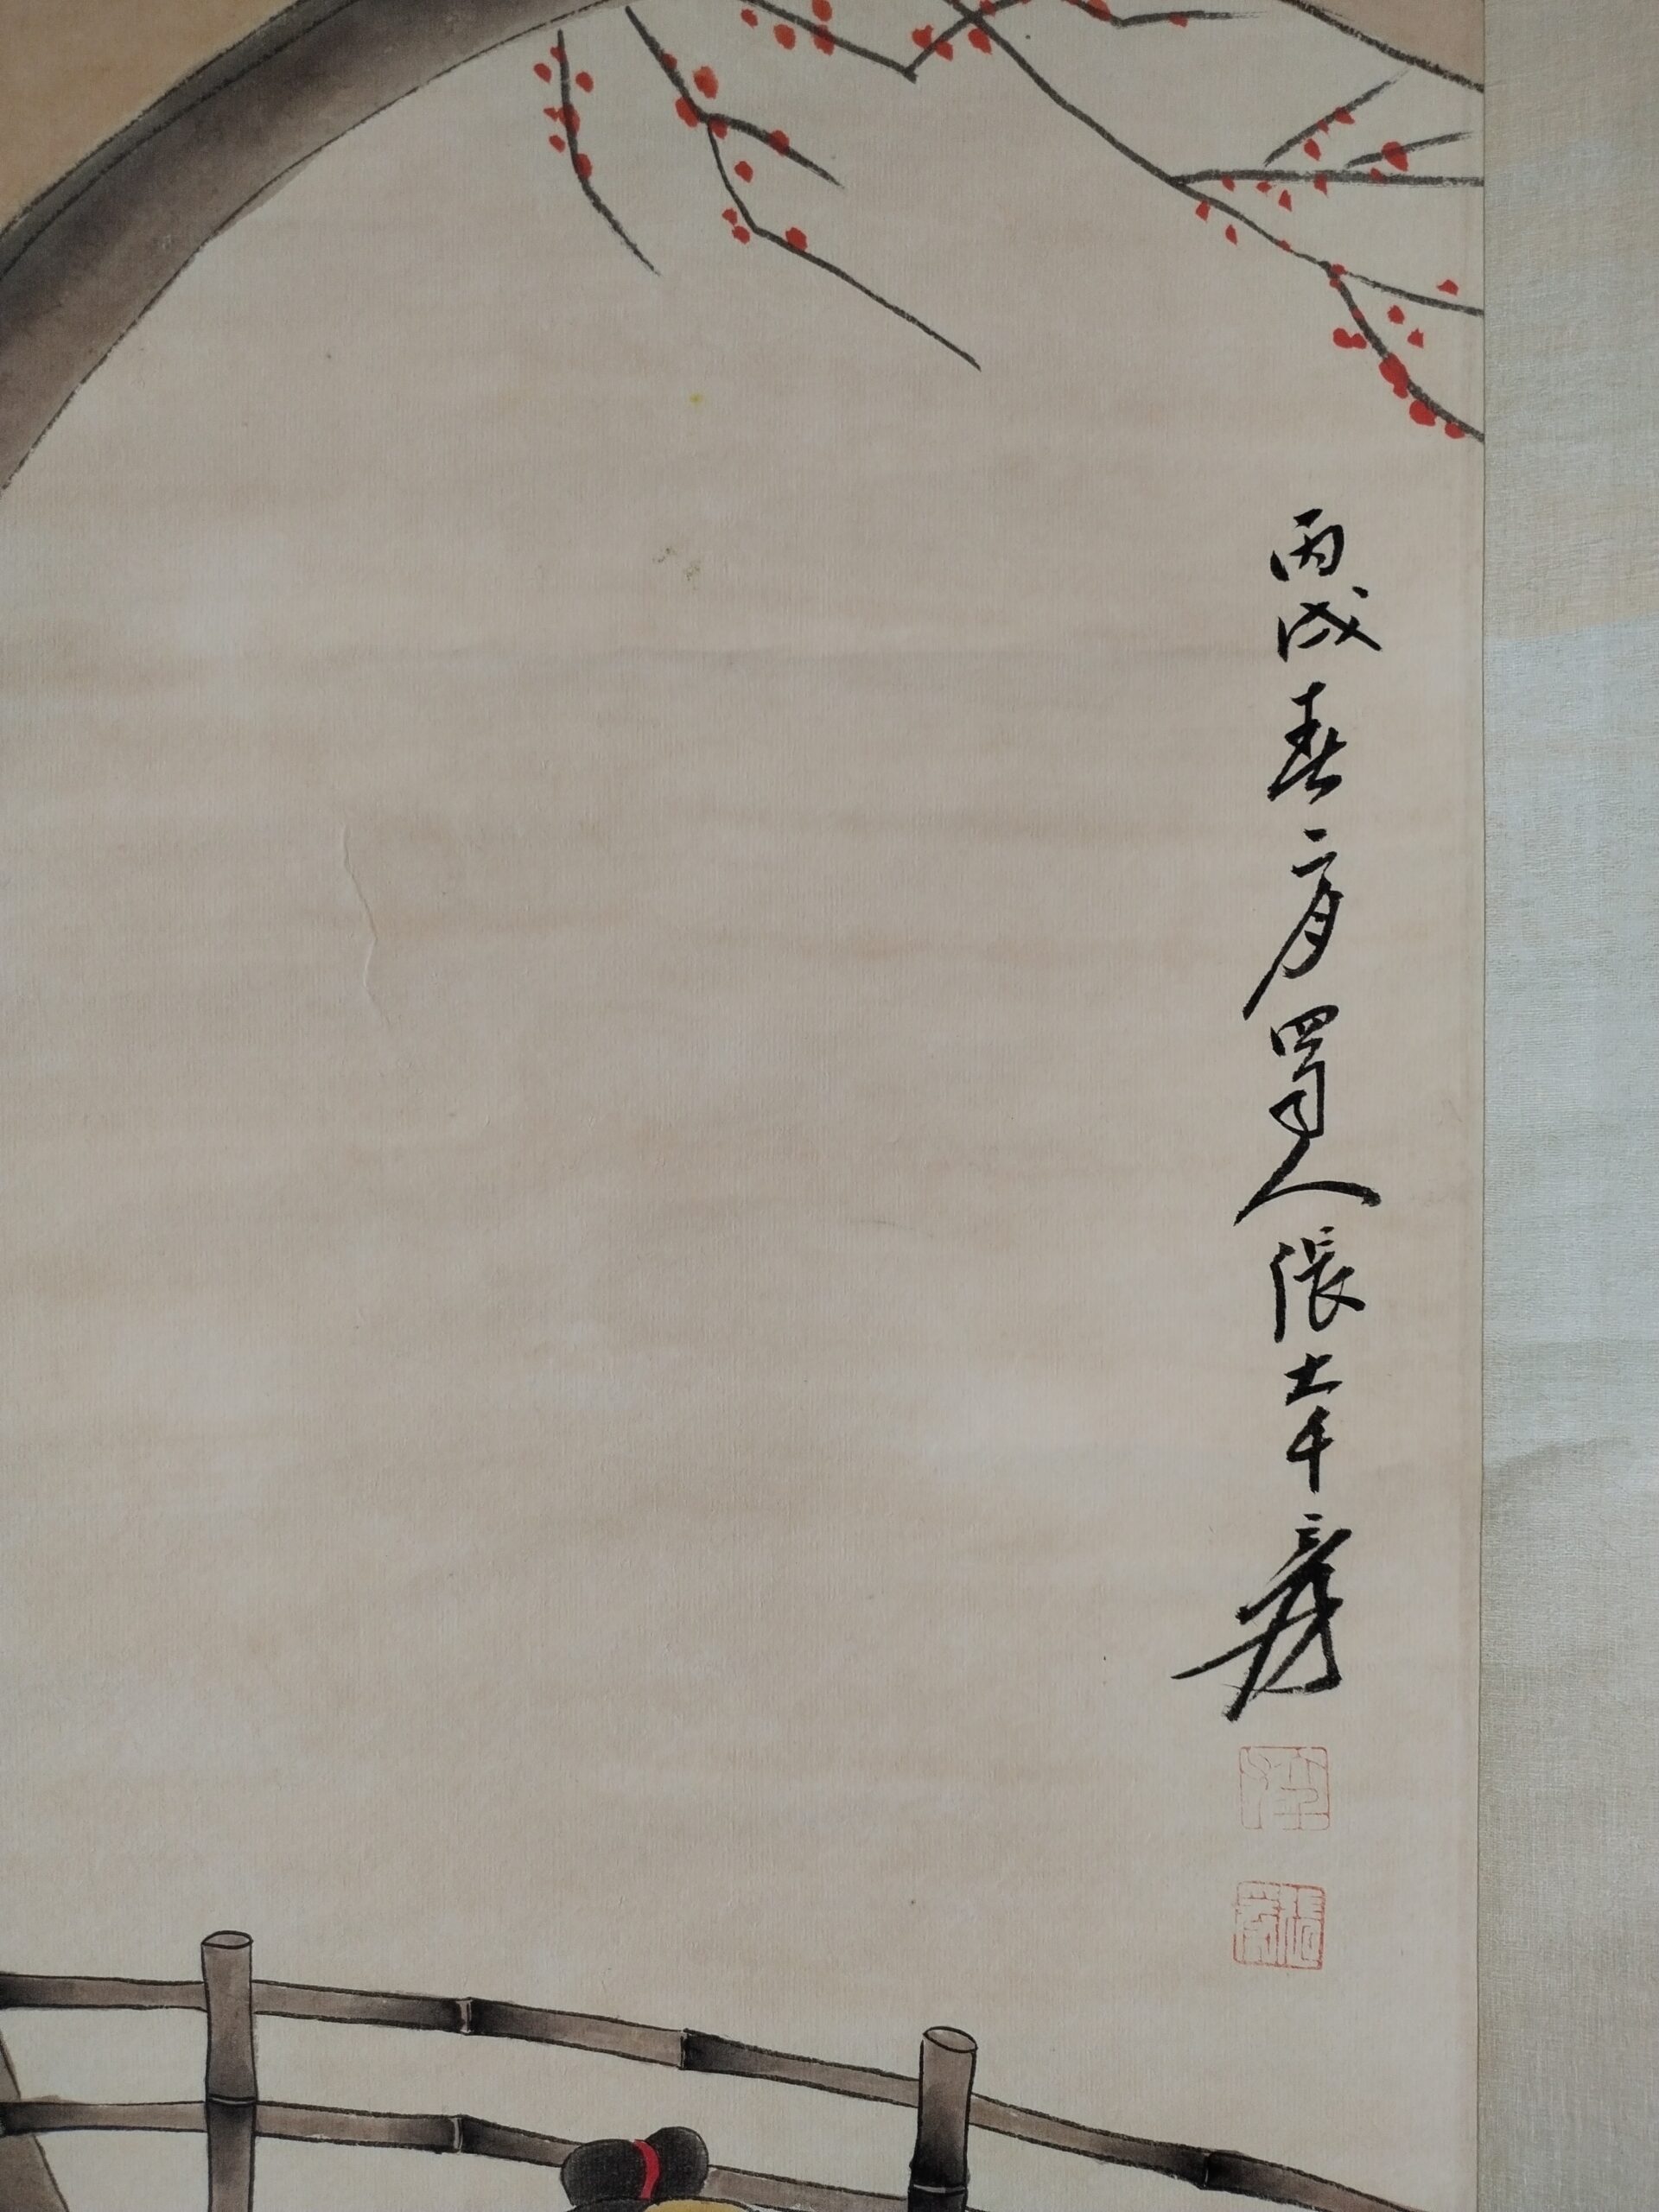 丙戌春二月蜀人張大千爰